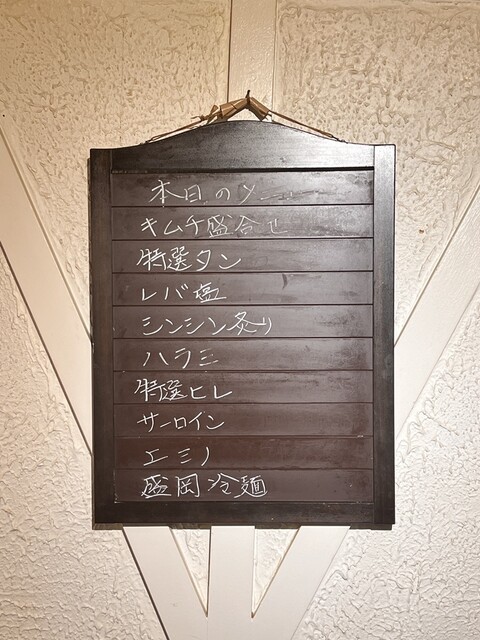 本日の
キムチ盛合せ
特選タン
レバ塩
シンシン炙り
ハラミ
特選ヒレ
サーロイン
エミノ
盛岡冷麺